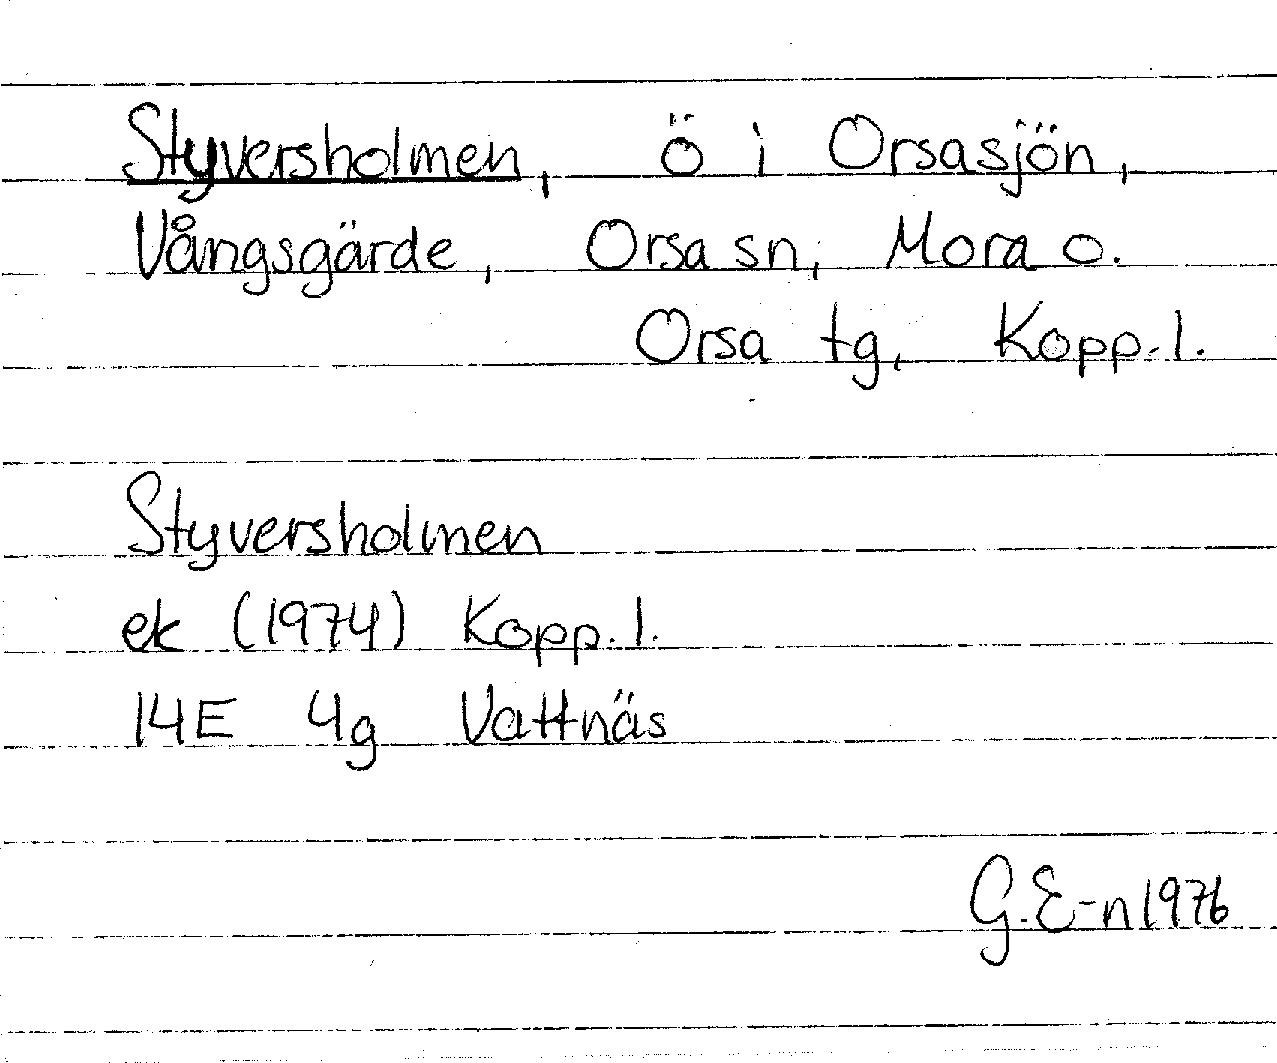 Styversholmen, ö i Orsasjön,
Vångsgärde, Orsa sn, Mora o.
Orsa tg, Kopp. l.
Styversholmen
ek (1974) Kopp. l.
14E 4g Vattnäs
G. E-n 1976